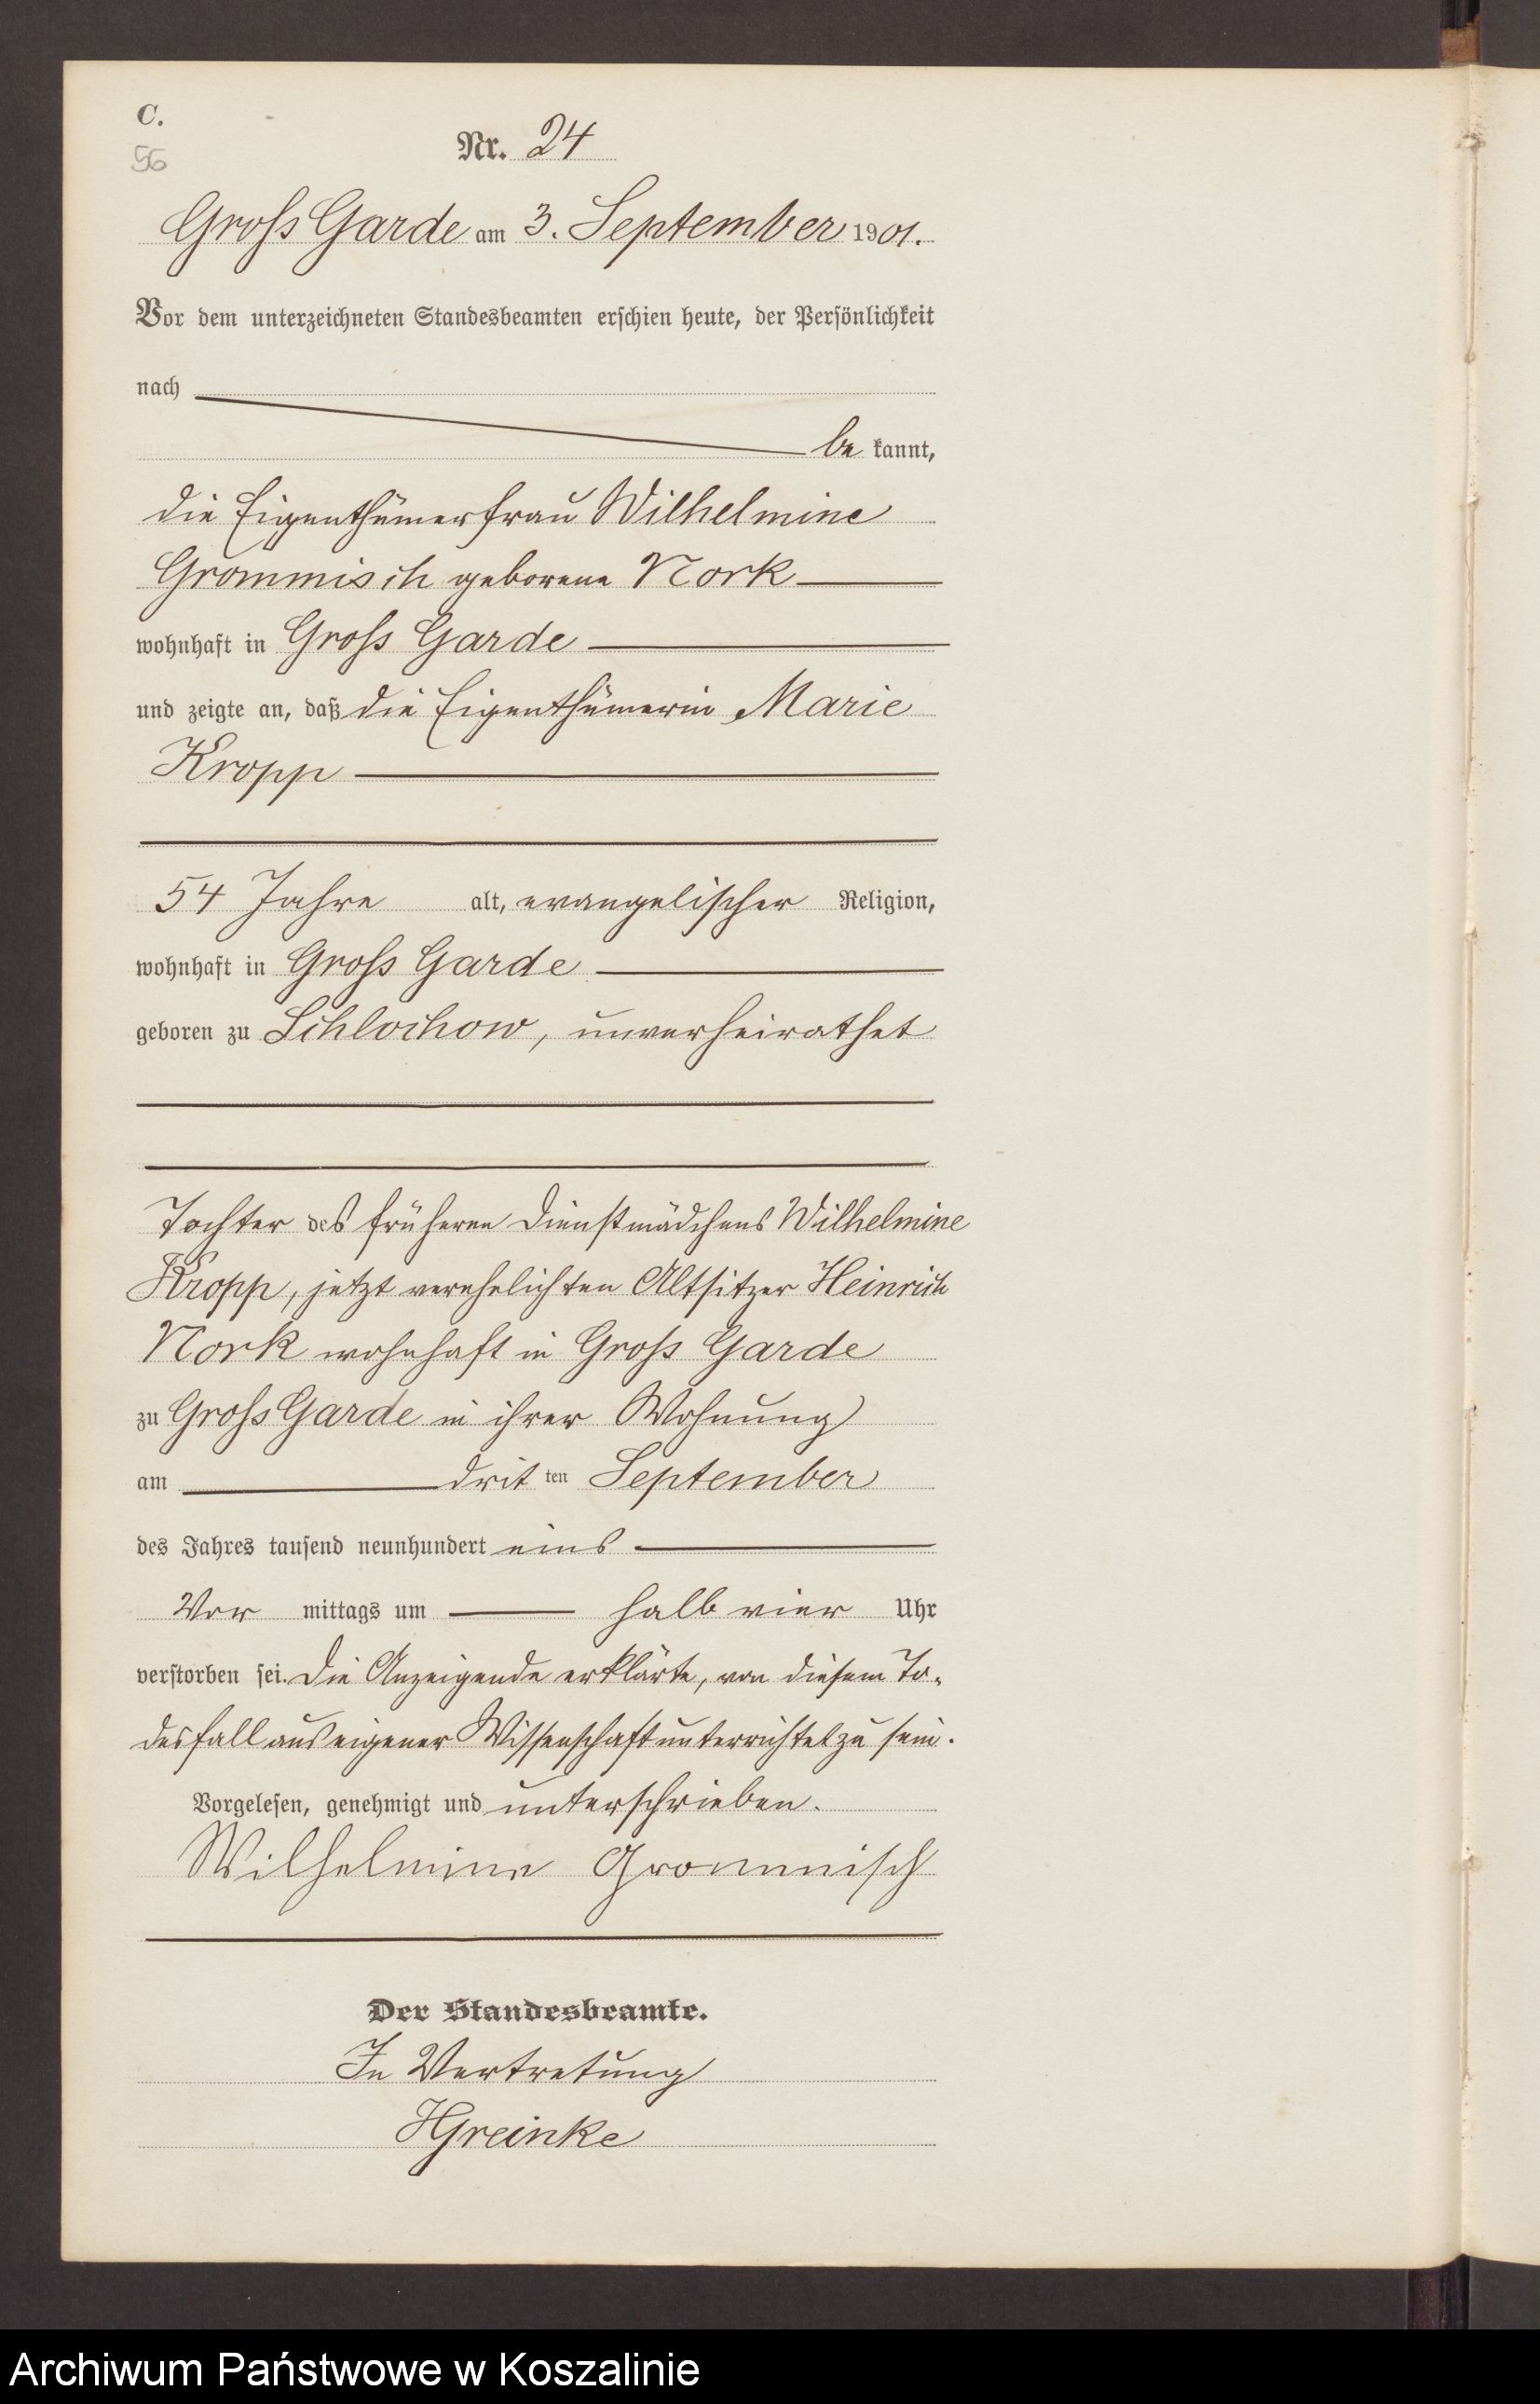 C.
56
Nr. 24
Groß Garde am 3. September 1901.
Vor dem unterzeichneten Standesbeamten erschien heute, der Persönlichkeit
nach
be kannt,
die Eigenthümerfrau Wilhelmine
Grommisch geborene Nork
wohnhaft in Groß Garde
und zeigte an, daß die Eigenthümerin Marie
Kropp
54 Jahre alt, evangelischer Religion,
wohnhaft in Groß Garde
geboren zu Schlochow, unverheirathet
Tochter des früheren Dienstmädchens Wilhelmine
Kropp, jetzt verehelichten Altsitzer Heinrich
Nork wohnhaft in Groß Garde
zu Groß Garde in ihrer Wohnung
am drit ten September
des Jahres tausend neunhundert eins
Vor mittags um halb vier Uhr
verstorben sei. Die Anzeigende erklärte, von diesem To-
desfall aus eigener Wissenschaft unterrichtet zu sein.
Vorgelesen, genehmigt und unterschrieben.
Wilhelmine Grommisch
Der Standesbeamte.
In Vertretung
HGreinke
Archiwum Państwowe w Koszalinie